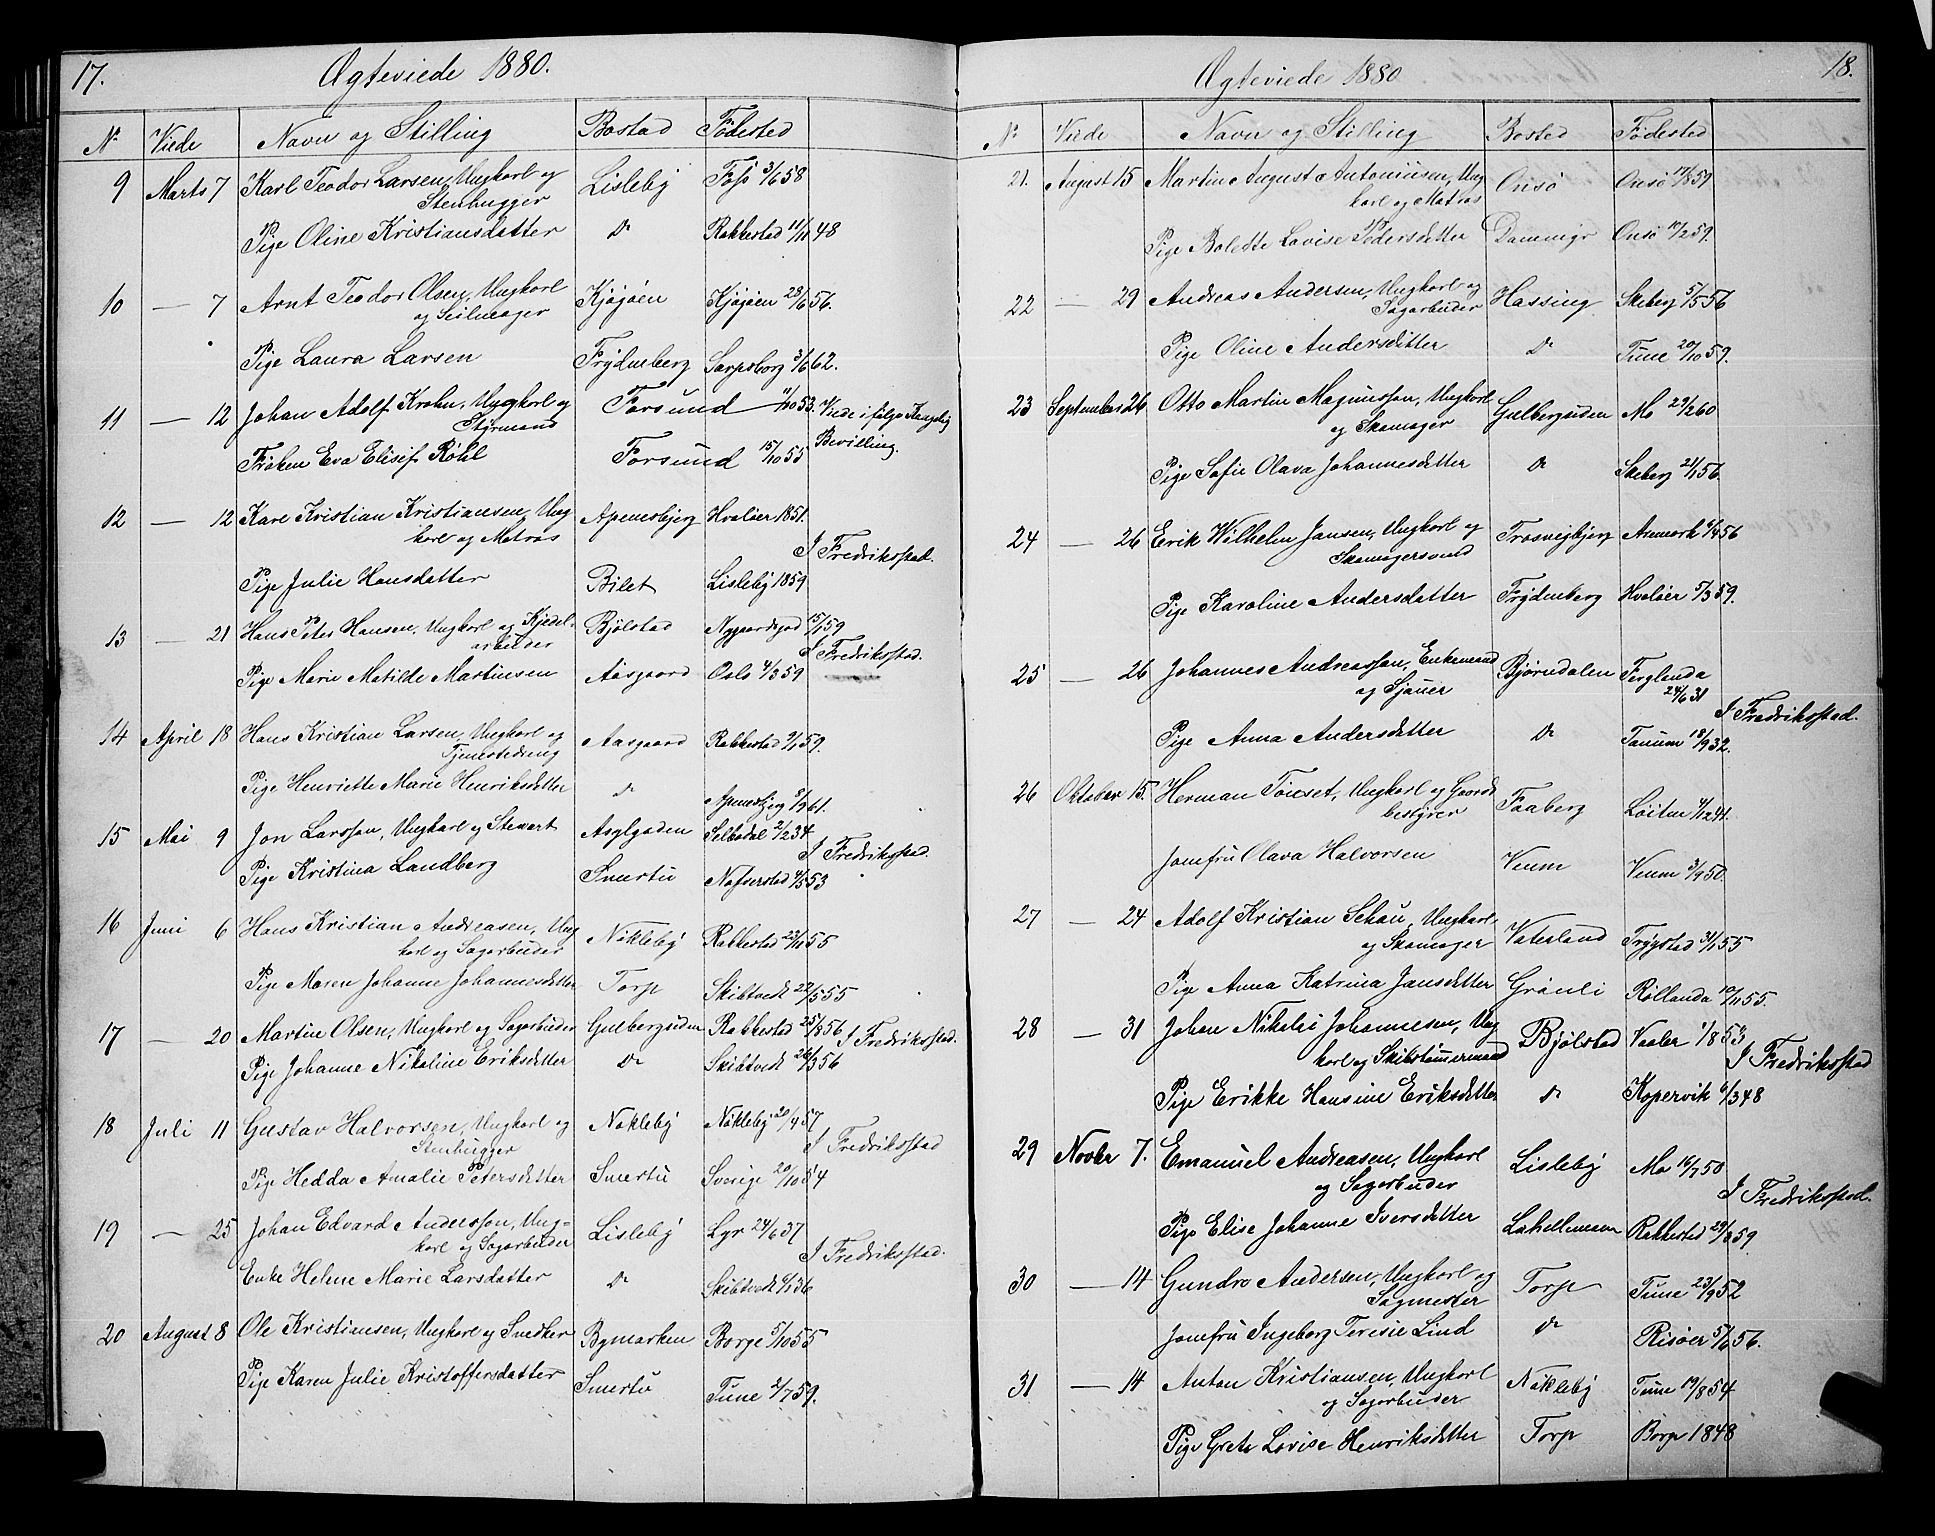 17. Ægteviede 1880.
No Viede Navn og Stilling Bostad Fødested
9 Marts 7 Karl Teodor Larsen, Ungkarl og Lisleby Foss 3/6 58
Stenhugger
Pige Oline Kristiansdatter Do Rakkestad 11/11 48
10 — 7 Arnt Teodor Olsen, Ungkarl Kjøjøen Kjøjøen 28/6 56.
og Seilmager
Pige Laura Larsen Frydenberg Sarpsborg 3/6 62.
11 — 12 Johan Adolf Krohn, Ungkarl og Forsund 11/10 53. Viede ifølge Kongelig
Styrmand Bevilling.
Frøken Eva Elisif Röhl Forsund 15/10 55
12 — 12 Karl Kristian Kristiansen, Ung Apenesbjerg Hvaløer 1851.
karl og Matros I Fredriksstad.
Pige Julie Hansdatter Bilet Lisleby 1859
13 — 21 Hans Peter Hansen, Ungkarl og Kjedel- Bjølstad Nygaardsgad 15/1 59
arbeider I Fredriksstad.
Pige Marie Matilde Martinsen Aasgaard Oslo 4/3 59
14 April 18 Hans Kristian Larsen, Ungkarl og Aasgaard Rakkestad 9/1 59.
Tjenestedreng
Pige Henriette Marie Henriksdatter Do Apenesbjerg 8/9 61.
15 Mai 9 Jon Larsson, Ungkarl og Stewart Asylgaden Selbodal 2/2 34
I Fredriksstad.
Pige Kristina Landberg Smertu Nafserstad 4/5 53
16 Juni 6 Hans Kristian Andreasen, Ung Nøkleby Rakkestad 23/11 55
karl og Sagarbeider
Pige Maren Johanne Johannesdatter Torp Skibtvedt 22/5 55
17 — 20 Martin Olsen, Ungkarl og Sagarbeider Gulbergsiden Rakkestad 25/8 56 I Fredriksstad.
Pige Johanne Nikoline Eriksdatter Do Skibtvedt 26/3 56
18 Juli 11 Gustav Halvorsen, Ungkarl og Nøkleby Nøkleby 20/9 57
Stenhugger I Fredriksstad
Pige Hedda Amalie Petersdatter Smertu Sverige 20/10 54
19 — 25 Johan Edvard Andersson, Ung= Lisleby Lyr 24/6 37
karl og Sagarbeider I Fredriksstad.
Enke Helene Marie Larsdatter Do Skibtvedt 6/1 36
20 August 8 Ole Kristiansen, Ungkarl og Snedker Bymarken Borge 5/10 55
Pige Karen Julie Kristoffersdatter Smertu Tune 2/7 59.
Ægteviede 1880 18.
No Viede Navn og Stilling Bosted Fødested
21. August 15 Martin August Antoniusen, Ung Onsø Onsø 17/8 59
karl og Matros
Pige Bolette Lovise Pedersdatter Dammyr Onsø 17/2 59.
22 — 29 Andreas Andersen, Ungkarl og Hassing Skeberg 5/5 56
Sagarbeider
Pige Oline Andersdatter Do Tune 20/10 59.
23 September 26 Otto Martin Magnusson, Ungkarl Gulbergsiden Mo 29/2 60
og Skomager
Pige Sofie Olava Johannesdatter Do Skeberg 21/1 56.
24 — 26 Erik Wilhelm Jansen, Ungkarl og Trosvigbjerg Aremark 6/4 56
Skomagersvend
Pige Karoline Andersdatter Frydenberg Hvaløer 5/3 59.
25 — 26 Johannes Andreasson, Enkemand Bjørndalen Ferglanda
og Sjauer 24/6 31 I Fredriksstad.
Pige Anna Andersdatter Do Tanum 18/9 32.
26 Oktober 15. Herman Tönset, Ungkarl og Gaards Faaberg Löiten 4/12 41.
bestyrer
Jomfru Olava Halvorsen Veum Veum 3/9 50.
27 — 24 Adolf Kristian Schau, Ungkarl Vaterland Trygstad 31/1 55
og Skomager
Pige Anna Katrina Jansdatter Grönli Röllanda 10/11 55.
28 — 31 Johan Nikolai Johannesen, Ung Bjølstad Vaaler 1/8 53
karl og Skibstømermand I Fredriksstad
Pige Erikke Hansine Eriksdatter Do Kopervik 6/3 48
29 Novbr 7. Emanuel Andreasen, Ungkarl Lisleby Mo 16/7 50
og Sagarbeider I Fredriksstad.
Pige Elise Johanne Iversdatter Lahellemoen Rakkestad 29/8 59
30 — 14 Gundro Andersen, Ungkarl og Torp Tune 23/9 52
Sagmester
Jomfru Ingeborg Teresie Lind Do Risøer 5/6 56.
31 — 14 Anton Kristiansen, Ungkarl Nøkleby Tune 19/8 54
og Sagarbeider
Pige Grete Lovise Henriksdatter Torp Borge 1848